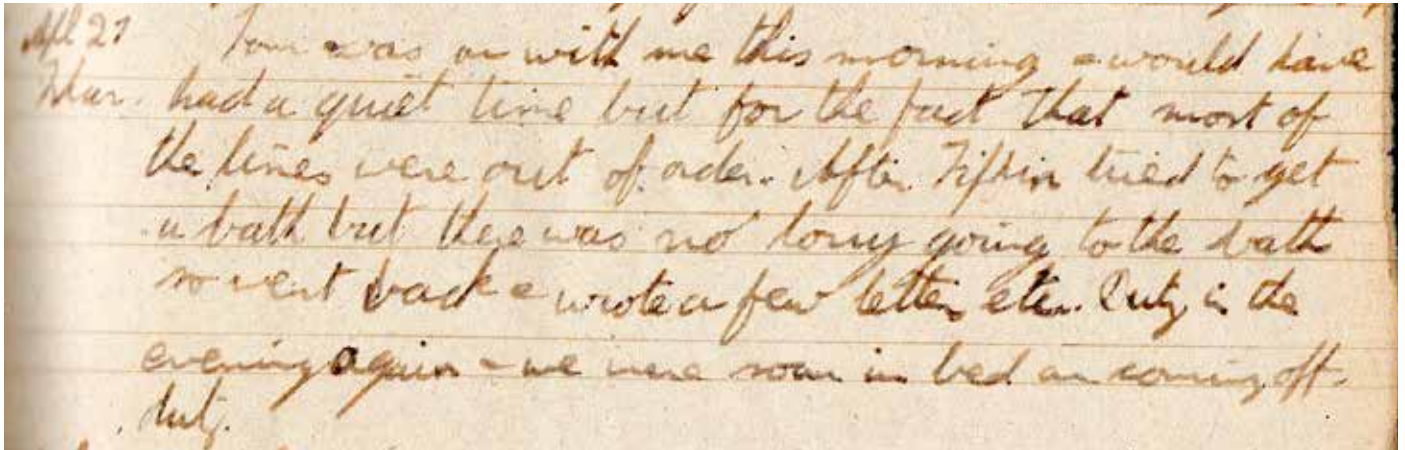 Apl 27 Tom was on with me this morning & would have
Thur. had a quiet time but for the fact that most of
the lines were out of order. After Tiffin tried to get
a bath but there was no lorry going to the bath
so went back & wrote a few letters etc. Duty in the
evening again & we were soon in bed on coming off.
duty.